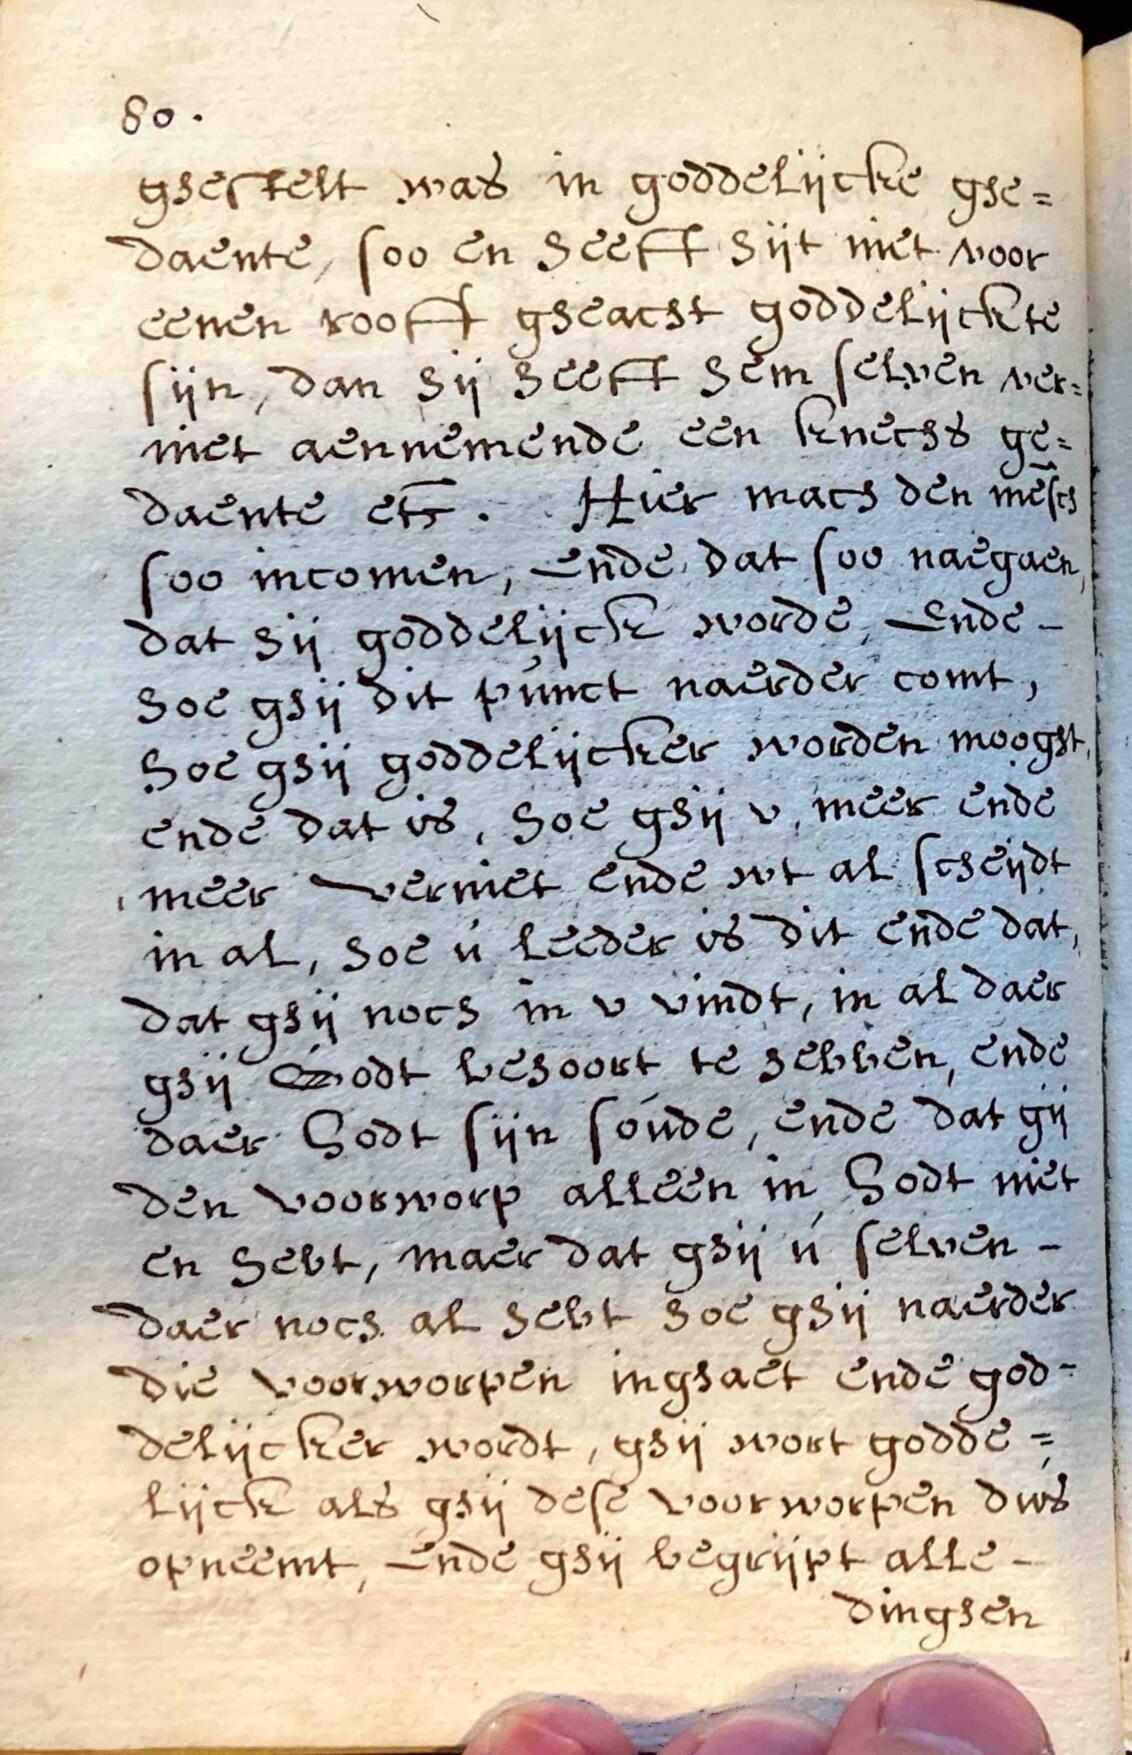 80.
ghestelt was in goddelijcke ghe=
daente, soo en heeft hijt niet voor
eenen rooft gheacht goddelijck te
sijn, dan hij heeft hem selven ver=
niet aennemende een knechs ge=
daente etc̄. Hier mach den mēsch
soo incomen, ende dat soo naegaen,
dat hij goddelijck worde, Ende –
hoe ghij dit punct naerder comt,
hoe ghij goddelijcker worden mooght,
ende dat is, hoe ghij v, meer ende
meer verniet ende wt al scheijdt
in al, hoe ú leeder is dit ende dat,
dat ghij noch in v vindt, in al daer
ghij Godt behoort te hebben, ende
daer Godt sijn soude, ende dat gij
den voorworp alleen in Godt niet
en hebt, maer dat ghij ú selven –
daer noch al hebt hoe ghij naerder
die voorworpen inghaet ende god=
delijcker wordt, ghij wort godde=
lijck als ghij dese voorworpen dus
opneemt, Ende ghij begrijpt alle –
dinghen